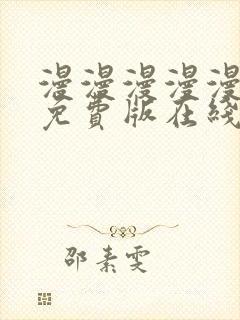 漫漫漫漫漫
免費版在綫
邵素雯